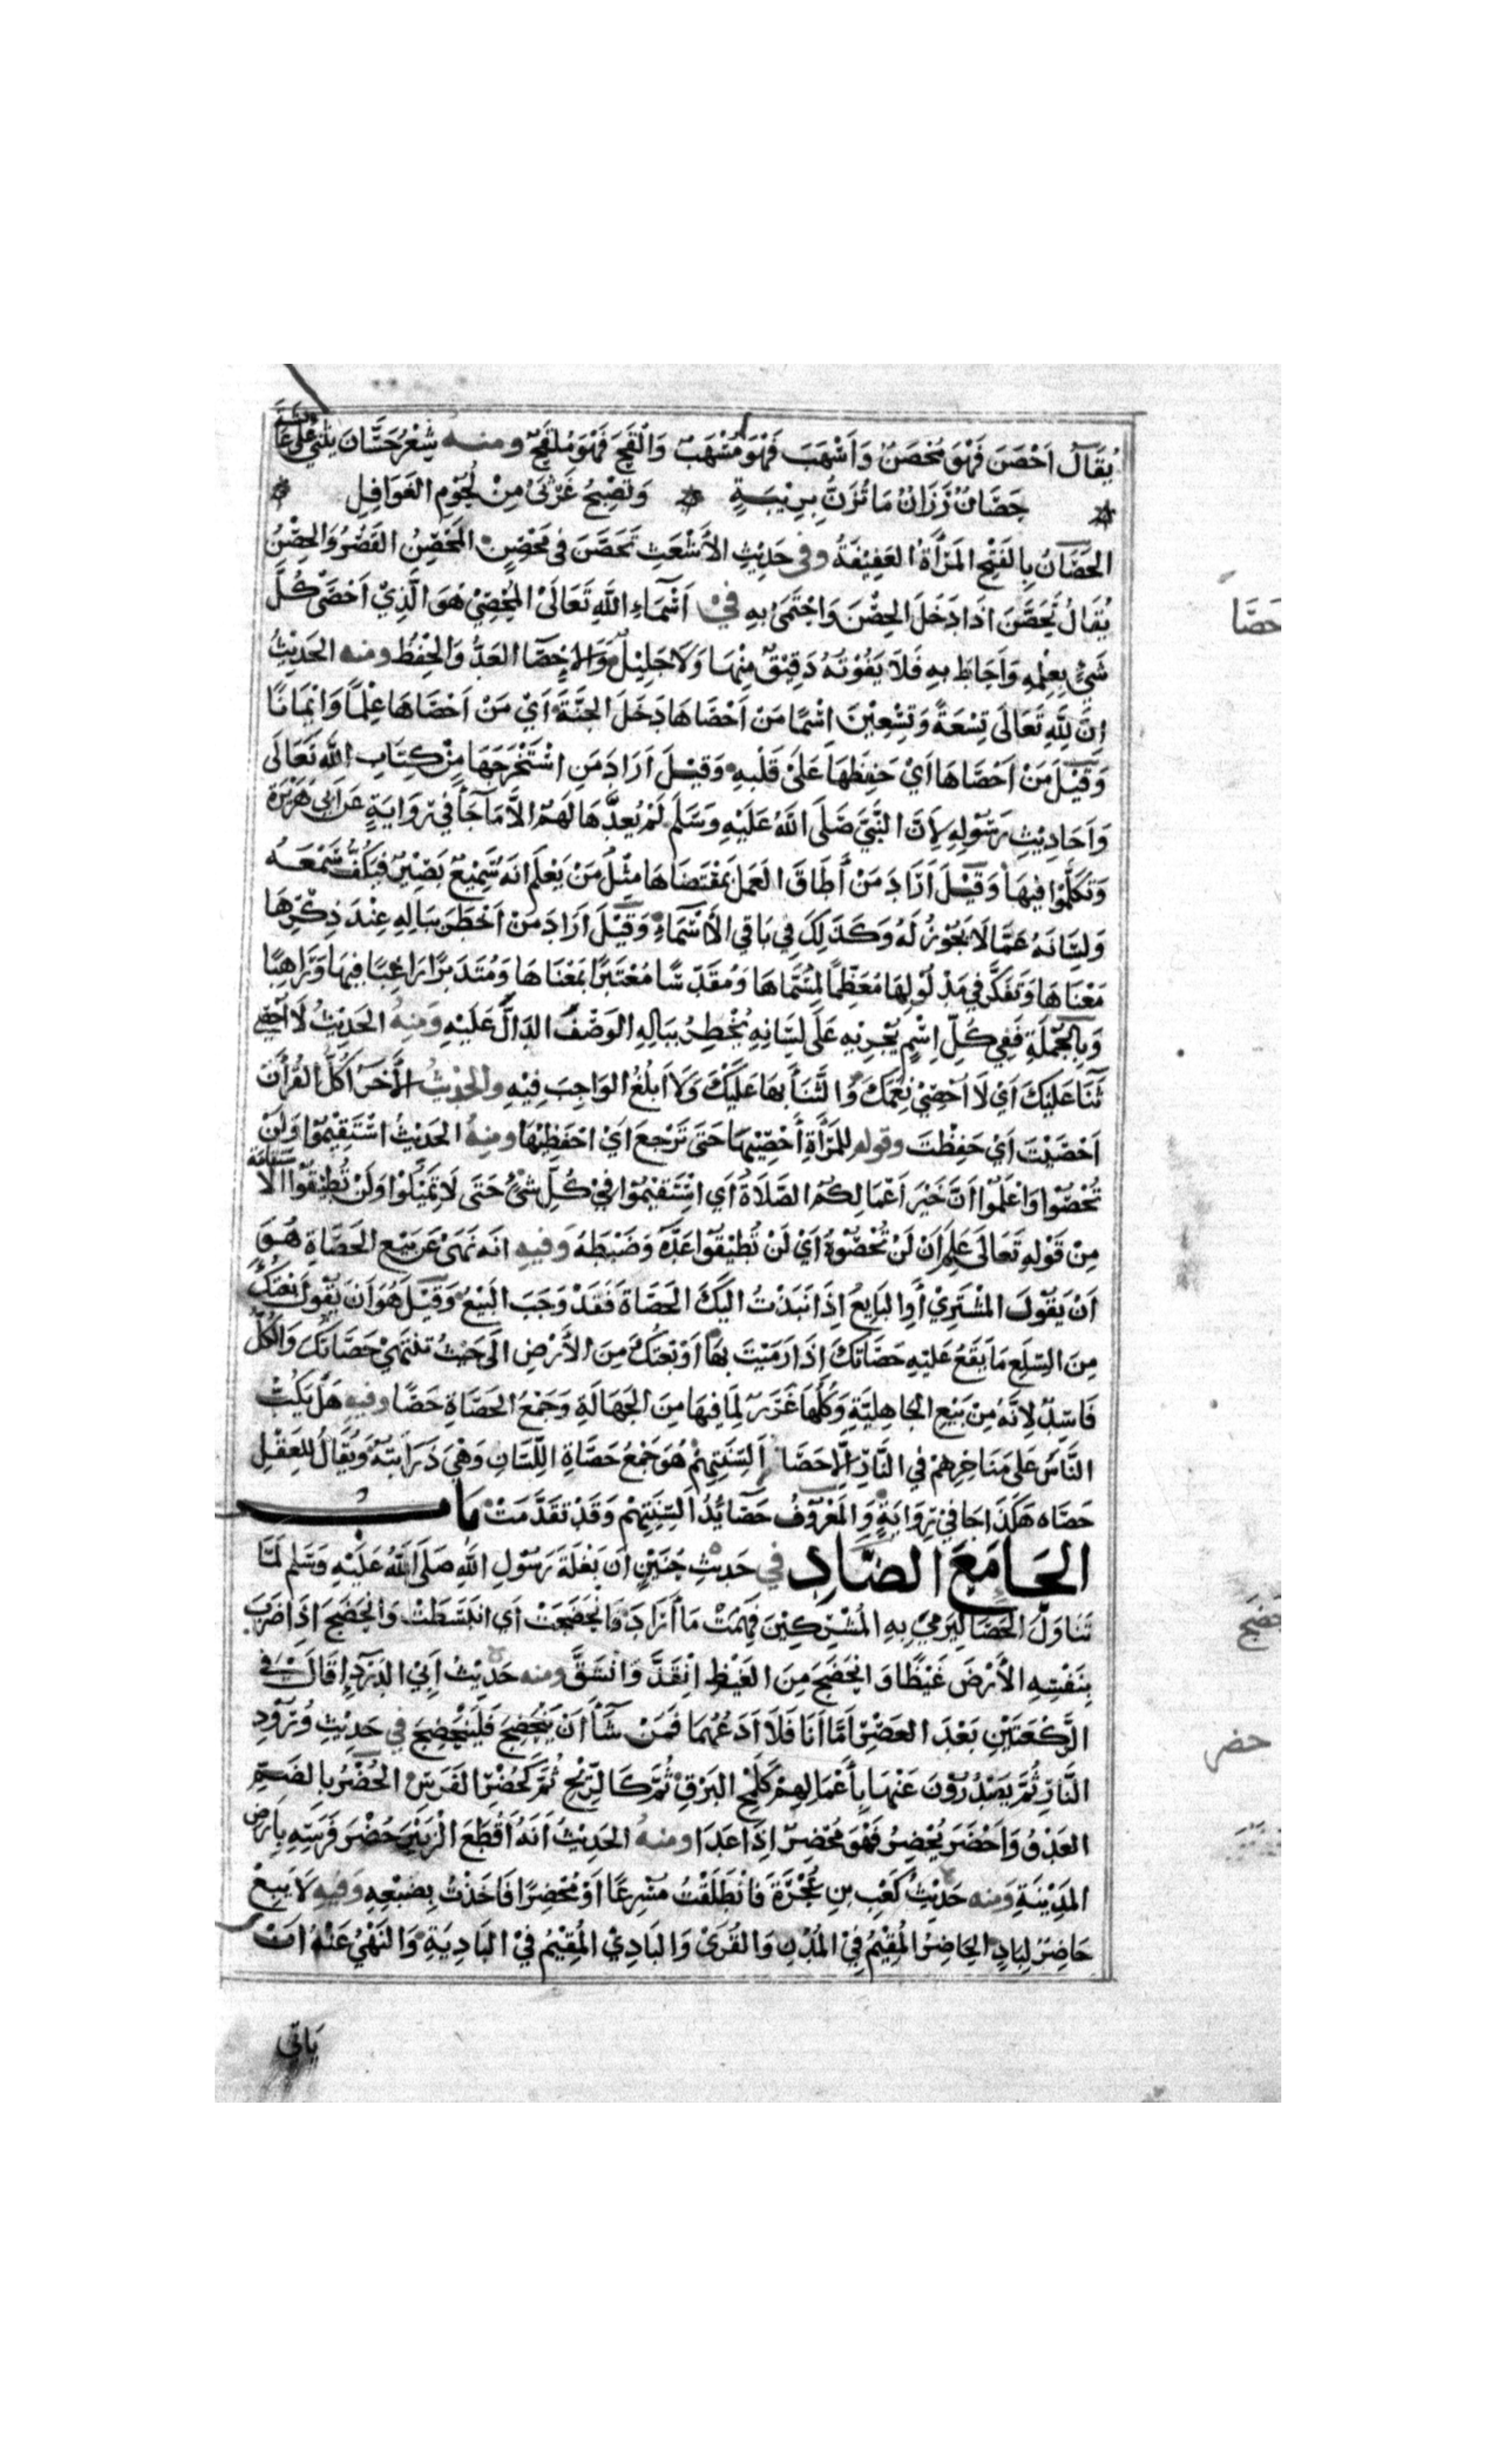 يُقَالُ اَحْصَنَ فَهْوَ مُحْصَنٌ وَاَسْهَبَ فَهْوَ مُسْهَبٌ وَاَلْفَجَ فَهْوَ مُلْفَجٌ ومنه شِعْرُ حَسَّانَ يُثْنِي عَلَى عَائِشَةَ
حَصَانٌ رَزَانٌ مَا تُزَنُّ بِرِيْبَةٍ وَتُصْبِحُ غَرْثَى مِنْ لُحُوْمِ الغَوَافِلِ
الحَصَانُ بِالفَتْحِ المَرْأَةُ العَفِيْفَةُ وفي حَدِيْثِ الأَشْعَثِ تَحَصَّنَ فِي مَحْصَنٍ المَحْصَنُ القَصْرُ وَالحِصْنُ
يُقَالُ تَحَصَّنَ اذَا دَخَلَ الحِصْنَ وَاحْتَمَى بِهِ في اَسْمَاءِ اللهِ تَعَالَى المُحْصِيْ هُوَ الَّذِيْ اَحْصَى كُلَّ
شَيْءٍ بِعِلْمِهِ وَاَحَاطَ بِهِ فَلَا يَفُوْتُهُ دَقِيْقٌ مِنْهَا وَلَا جَلِيْلٌ وَالاِحْصَا العَدُّ وَالحِفْظُ ومنه الحَدِيْثُ
اِنَّ لِلّٰهِ تَعَالَى تِسْعَةً وَتِسْعِيْنَ اسْمًا مَنْ اَحْصَاهَا دَخَلَ الجَنَّةَ اَيْ مَنْ اَحْصَاهَا عِلْمًا وَاِيْمَانًا
وَقِيْلَ مَنْ اَحْصَاهَا اَيْ حَفِظَهَا عَلَى قَلْبِهِ وَقِيْلَ اَرَادَ مَنِ اسْتَخْرَجَهَا مِنْ كِتَابِ اللهِ تَعَالَى
وَاَحَادِيْثِ رَسُوْلِهِ لِاَنَّ النَّبِيَّ صَلَّى اللهُ عَلَيْهِ وَسَلَّمَ لَمْ يَعُدَّهَا لَهُمْ الاَّ مَا جَاَ فِي رِوَايَةٍ عَن اَبِي هُرَيْرَةَ
وَتَكَلَّمُوا فِيهَا وَقِيْلَ اَرَادَ مَنْ أَطَاقَ العَمَلَ بِمُقْتَضَاهَا مِثْلَ مَنْ يَعْلَم انَهُ سَمِيْعٌ بَصِيْرٌ فَيَكُفُّ سَمْعَهُ
وَلِسَانَهُ عَمَّا لَا يَجُوْزُ لَهُ وَكَذَلِكَ فِي بَاقِي الأَسْمَاءِ وَقِيْلَ اَرَادَ مَنْ اَخْطَرَ بِبَالِهِ عِنْدَ ذِكْرِهَا
مَعْنَاهَا وَتَفَكَّرَ فِي مَدْلُوْلِهَا مُعَظِّمًا لِمُسَمَّاهَا وَمُقَدِّسًا مُعْتَبِرًا بِمَعْنَاهَا وَمُتَدَبِّرًا رَاغِبًا فِيهَا وَرَاهِبًا
وَبِالجُمْلَةِ فَفِي كُلِّ اِسْمٍ يُجْرِيْهِ عَلَى لِسَانِهِ يُخْطِرُ بِبَالِهِ الوَصْفَ الدَالَّ عَلَيْهِ وَمِنْهُ الحَدِيْثُ لَا اُحْصِي
ثَنَا عَلَيْكَ اَيْ لَا اُحْصِيْ نِعَمَكَ وَالثَّنَأَ بِهَا عَلَيْكَ وَلَا اَبْلُغُ الوَاجِبَ فِيْهِ والحَدِيْثُ الأَخَرُ اَكُلَّ القُرْأَنِ
اَحْصَيْتَ اَيْ حَفِظْتَ وقوله لِلمَرْأَةِ أَحْصِيْهَا حَتَى تَرْجِعَ اَيْ احْفَظِيْهَا ومنهُ الحَدِيْثُ اسْتَقِيْمُوْا وَلَنْ
تُحْصُوْا وَاعْلَمُوْا اَنَّ خَيْرَ اَعْمَالِكُمُ الصَّلَاةُ أَي اسْتَقِيْمُوْا فِيْ كُلِّ شَيْءٍ حَتَى لَا تَمِيْلُوْا وَلَنْ تُطِيْقُوْا الاسْتِقَامَة
مِنْ قَوْلِهِ تَعَالَى عَلِمَ اَنْ لَنْ تُحْصُوْهُ اَيْ لَنْ تُطِيْقُوْا عَدَّهُ وَضَبْطَهُ وَفيهِ انَهُ نَهَى عَن بَيْعِ الحَصَاةِ هُوَ
اَنْ يَقُوْلَ المُشْتَرِيْ أَوِ البَايِعُ اِذَا نَبَذْتُ الَيْكَ الحَصَاةَ فَقَدْ وَجَبَ البَيْعُ وَقِيْلَ هُوَ اَنْ يَقُوْلَ بِعْتُكَ
مِنَ السِّلَعِ مَا يَقَعُ عَلَيْهِ حَصَاتُكَ اِذَا رَمَيْتَ بِهَا اَوْ بِعْتُكَ مِنَ الأَرْضِ الَى حَيْثُ تَنْتَهِيْ حَصَاتُكَ وَالكُلُّ
فَاسِدٌ لِاَنَّهُ مِنْ بَيْعِ الجَاهِلِيَّةِ وَكُلُّهَا غَرَرٌ لِمَا فِيهَا مِنَ الجَهَالَةِ وَجَمْعُ الحَصَاةِ حَصًا وفيهِ هَلْ يَكُبُّ
النَّاسَ عَلَى مَنَاخِرِهِمْ فِي النَّارِ اِلَّا حَصَا اَلْسِنَتِهِمْ هُوَ جَمْعُ حَصَاةِ اللِّسَانِ وَهْيَ ذَرَابَتُهُ وَيُقَالُ لِلعَقْلِ
حَصَاه هَكَذَا جَا فِي رِوَايَةٍ وَالمَعْرُوْفُ حَصَايِدُ اَلْسِنَتِهِمْ وَقَدْ تَقَدَّمَتْ بَاب
الحَا مَعَ الضَّادِ في حَدِيْثِ حُنَيْنٍ اَنَ بَغْلَةَ رَسُوْلِ اللهِ صَلَى اللهُ عَلَيْهِ وَسَلم لَمَّا
تَنَاوَلَ الحَصَا لِيَرمِيَ بِهِ المُشْرِكِيْنَ فَهِمَتْ مَا أَرَادَ فَانْحَضَجَتْ اَيِ انْبَسَطَتْ وَانْحَضَجَ اذَا ضَرَبَ
بِنَفْسِهِ الأَرْضَ غَيْظًا وَانْحَضَجَ مِنَ الغَيْظِ انْقَدَّ وَانْشَقَّ ومنه حَدِيْثُ اَبِيْ الدَرْدَاءِ قَالَ فِي
الرَّكْعَتَيْنِ بَعْدَ العَصْرِ اَمَّا اَنَا فَلَا اَدَعُهُمَا فَمَنْ شَأَ أَنْ يَنْحَضِجَ فَلْيَنْحَضِجَ في حَدِيْثِ وُرُوْدِ
النَّارِ ثُمَّ يَصْدُرُوْنَ عَنْهَا بِأَعْمَالِهِمْ كَلَمْحِ البَرْقِ ثُمَّ كَالرِّيْحِ ثُمَّ كَحُضْرِ الفَرَسِ الحُضْرُ بِالضَّمِّ
العَدْوُ وَاَحْضَرَ يُحْضِرُ فَهْوَ مُحْضِرٌ اِذَا عَدَا ومنهُ الحَدِيْثُ اَنَهُ اَقْطَعَ الزُبَيْرَ حُضْرَ فَرَسِهِ بِاَرْضِ
المَدِيْنَةِ وَمنه حَدِيْثُ كَعْبِ بنِ عُجْرَةَ فَانْطَلَقْتُ مُسْرِعًا اَوْ مُحْضِرًا فَاَخَذْتُ بِضَبْعِهِ وَفِيهِ لَا يَبِعْ
حَاضِرٌ لِبَادٍ الحَاضِرُ المُقِيْمُ فِيْ المُدُنِ وَالقُرَى وَالبَادِيْ المُقِيْمُ فِيْ البَادِيَةِ وَالنَهْيُ عَنْهُ اَنْ
يَاتِي
حَصَا
حضج
حضر